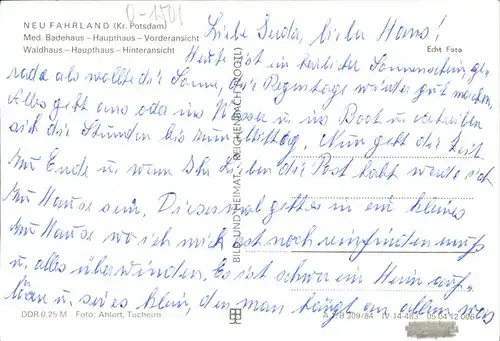 D-1501
NEU FAHRLAND (Kr. Potsdam)
Med. Badehaus – Haupthaus – Vorderansicht
Waldhaus – Haupthaus – Hinteransicht
Echt Foto
Liebe Gerda, lieber Hans!
Heute ist ein herrlicher Sonnenschein, ge-
rade als wollte die Sonne, die Regentage wieder gut machen.
Alles geht ans oder ins Wasser u. ins Boot u. vertreiben
sich die Stunden bis zum Mittag. Nun geht die Zeit
zu Ende u. wenn Ihr Lieben die Post habt werde ich
zu Hause sein. Diesesmal geht es in ein kleines
zu Hause wo ich mich erst noch reinfinden muß
u. alles überwinden. Es ist schwer ein Heim auf-
lösen u. sei es klein, den man hängt an allem was
BILD UND HEIMAT REICHENBACH (VOGTL)
DDR 0,25 M Foto: Ahlert, Tucheim
A 1/B 309/84 IV-14-483 05 04 12 006